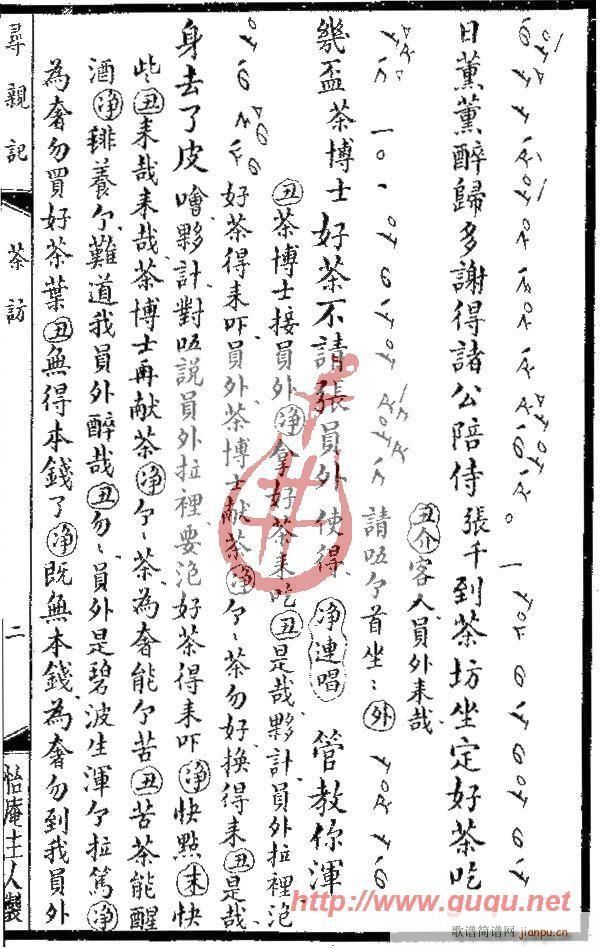 日薰薰醉歸多謝得諸公陪侍張千到茶坊坐定好茶吃
丑介客人員外来哉
請唔个首坐：外
幾盃茶博士好茶不請張員外使得净連唱管教你渾
丑茶博士接員外净拿好茶来吃丑是哉夥計員外拉裡泡
好茶得来吓員外茶博士献茶净个、茶勿好換得来丑是哉
身去了皮噲夥計對唔説員外拉裡要泡好茶得来吓净快點末快
些丑来哉来哉茶博士再献茶净个、茶為奢能个苦丑苦茶能醒
酒净養个難道我員外醉哉丑勿、員外是碧波生渾个拉篤净
為奢勿買好茶葉丑無得本錢了净既無本錢為奢勿到我員外
尋親記
茶訪
二
怡庵主人製
http://www.guqu.net
歌谱简谱网
jianpu.cn